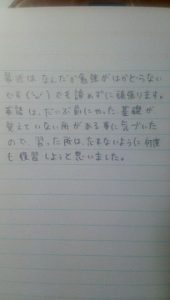 最近は なんだか勉強がはかどらない
です(>_<) でも諦めずに頑張ります。
英語は、だいぶ前にやった 基礎が
覚えていない所がある事に気づいた
ので、習った所は、忘れないように何度
も復習しようと思いました。